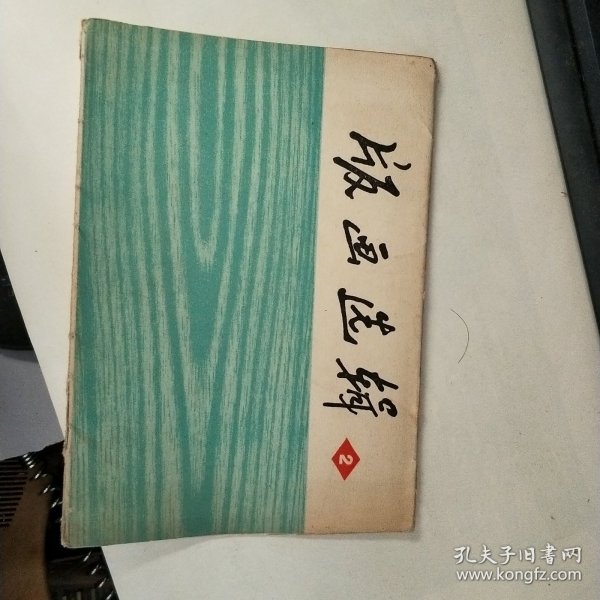 版画选辑
2
孔夫子旧书网
www.kongfz.com